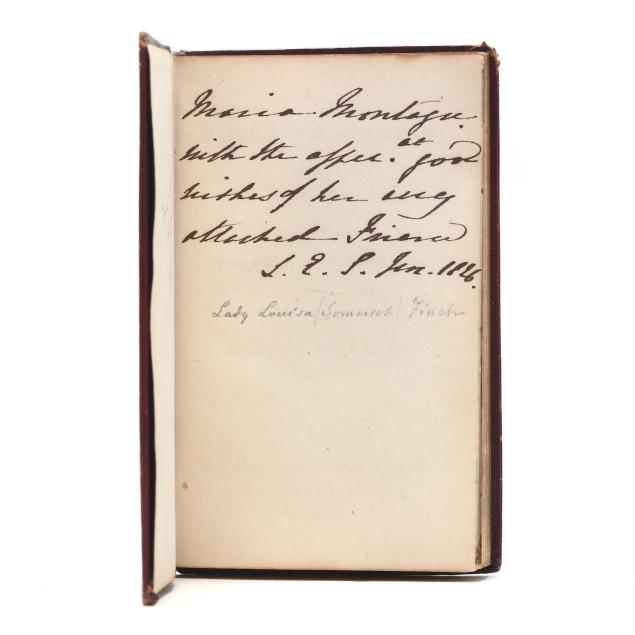 Maria Montagu
with the affec. at good
wishes of her very
attached Friend
L. E. S. Jan. 1826.
Lady Louisa (Somerset) Finch